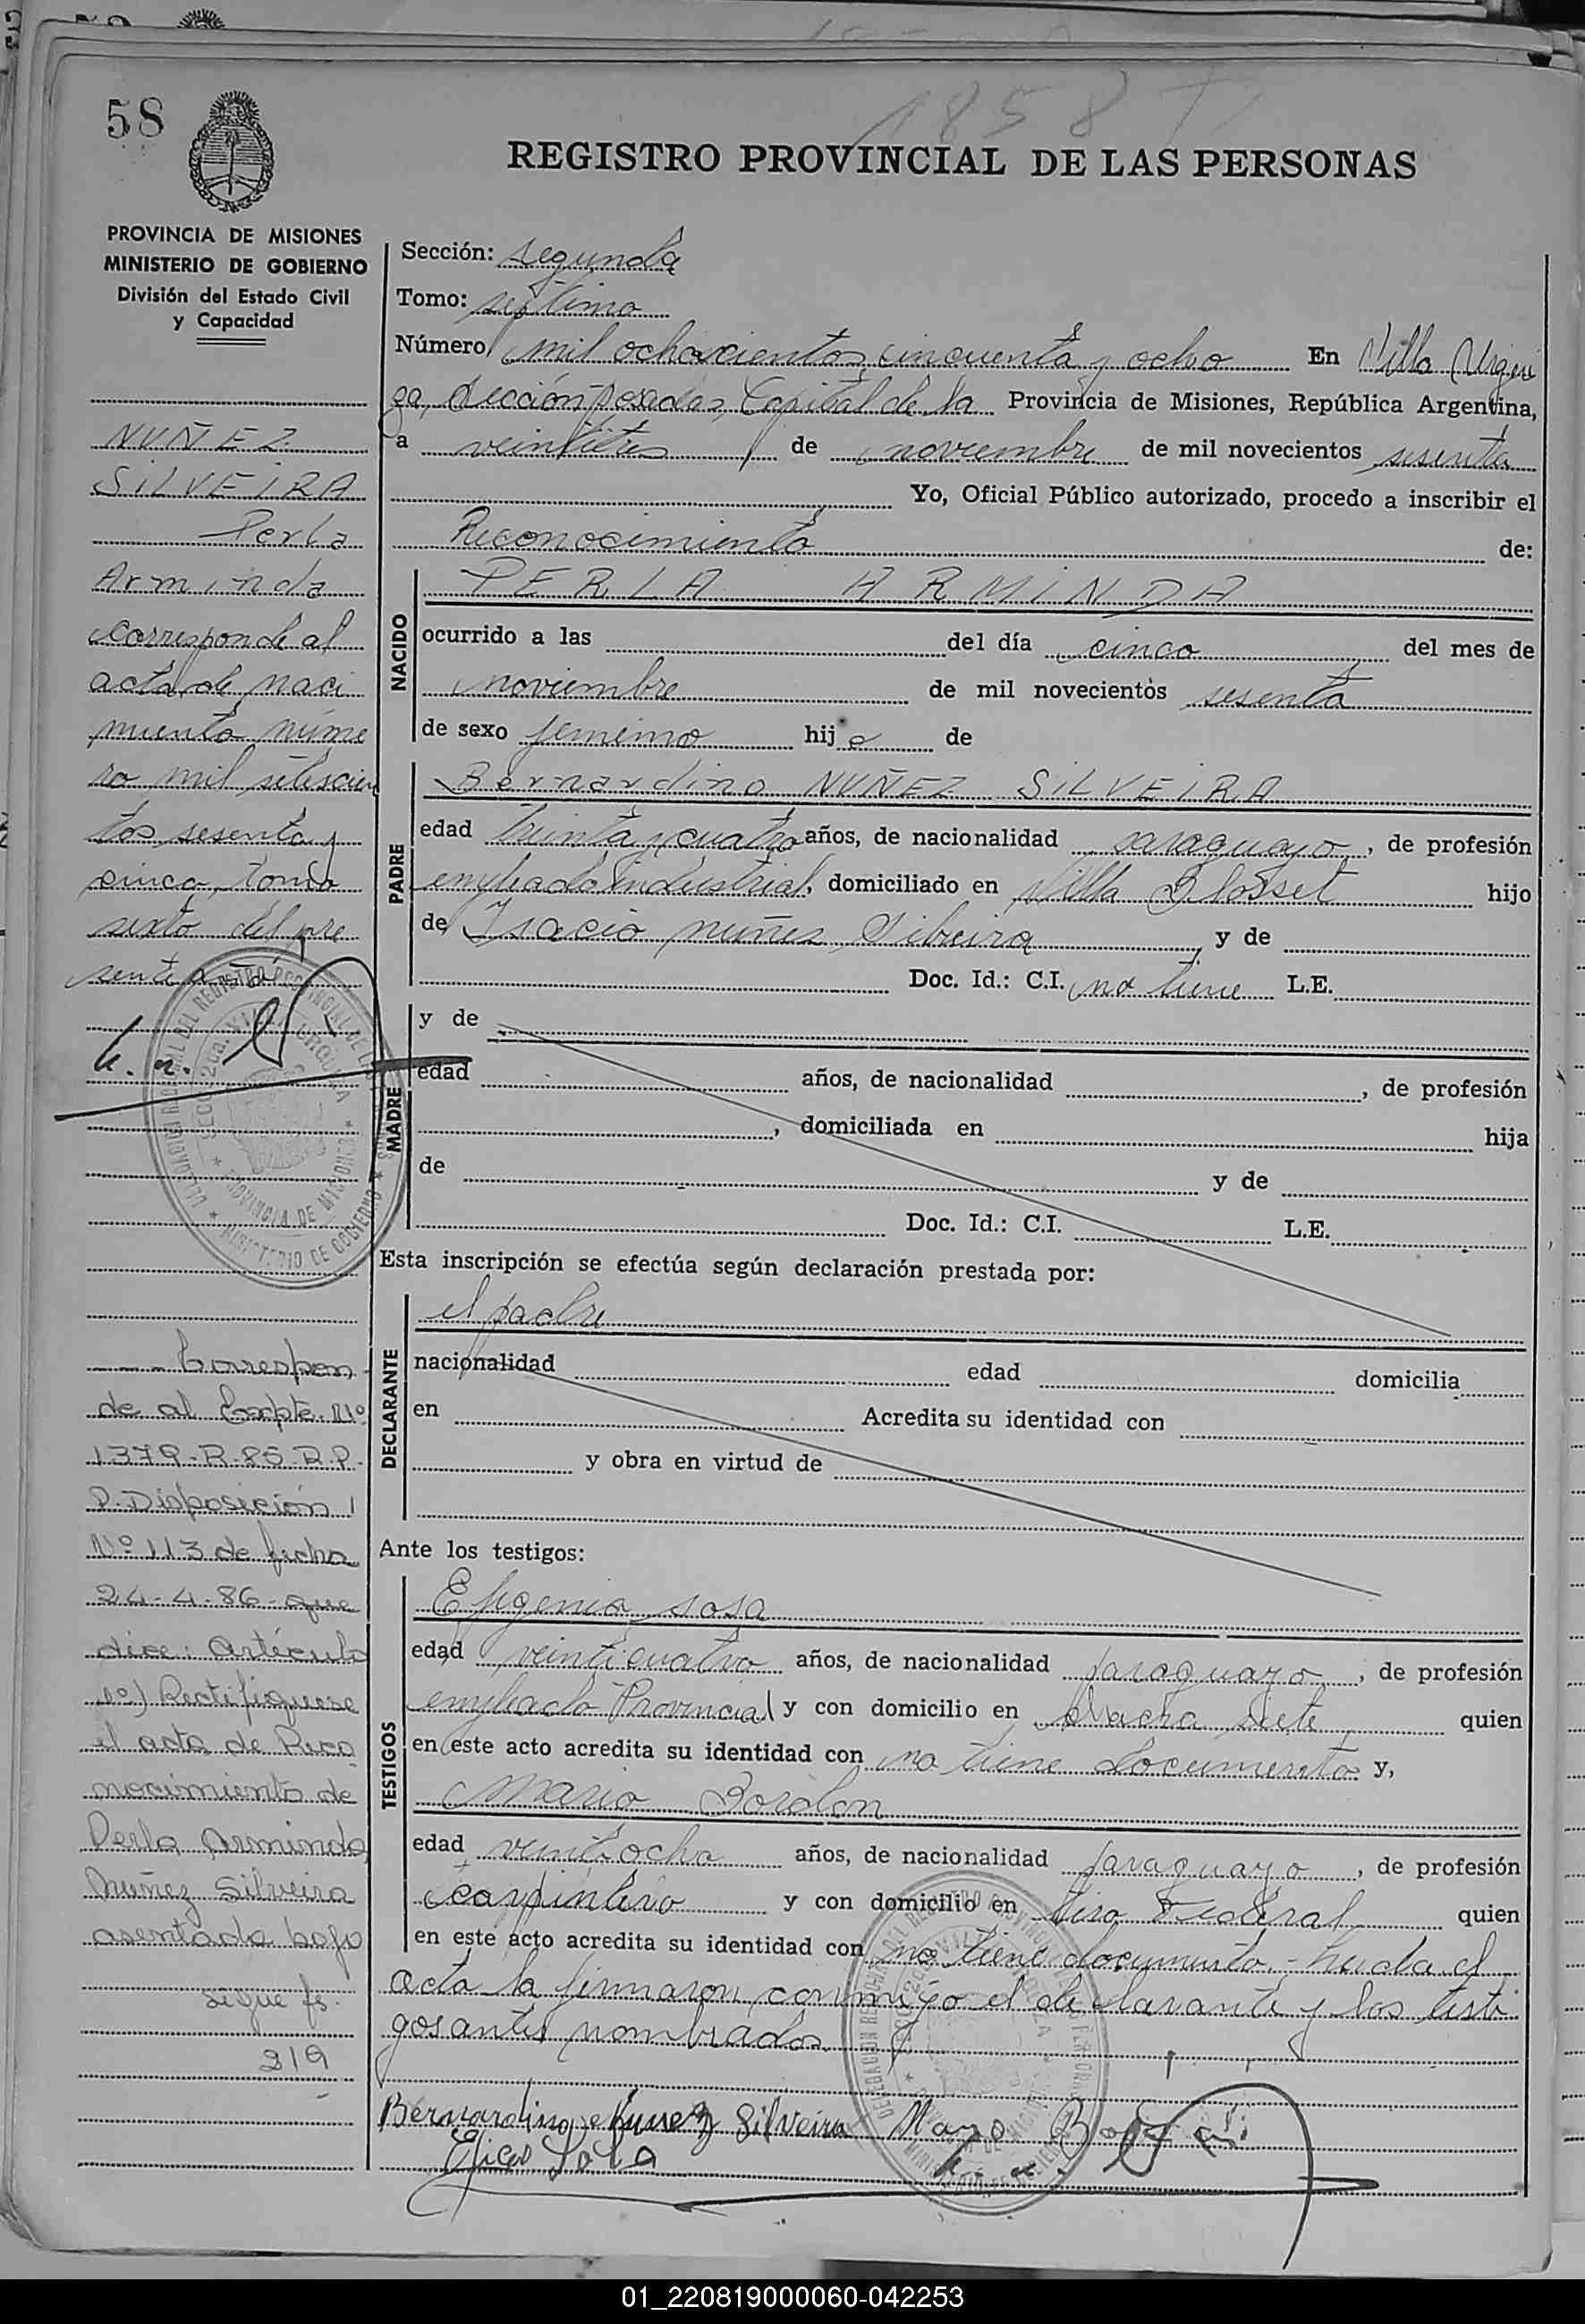 58
1858 T
REGISTRO PROVINCIAL DE LAS PERSONAS
PROVINCIA DE MISIONES
MINISTERIO DE GOBIERNO
División del Estado Civil
y Capacidad
NUÑEZ
SILVEIRA
Perla
Arminda
corresponde al
acta de naci
miento núme
ro mil setescien
tos sesenta y
cinco, tomo
sexto del pre
sente año
Correspon
de al Expte. Nº
1379-R-85-R.P.
P. Disposición
Nº 113 de fecha
24-4-86- que
dice: Artículo
1º) Rectifíquese
el acta de Reco
nocimiento de
Perla Arminda
Nuñez Silveira
asentada bajo
sigue fs.
219
Sección: segunda
Tomo: septimo
Número mil ochocientos cincuenta y ocho En Villa Urqui
za, Sección posadas, Capital de la Provincia de Misiones, República Argentina,
a veintitres de noviembre de mil novecientos sesenta
Yo, Oficial Público autorizado, procedo a inscribir el
Reconocimiento de:
NACIDO
PERLA ARMINDA
ocurrido a las del día cinco del mes de
noviembre de mil novecientos sesenta
de sexo femenino hija de
PADRE
Bernardino NUÑEZ SILVEIRA
edad treinta y cuatro años, de nacionalidad paraguayo, de profesión
empleado industrial, domiciliado en Villa Blosset hijo
de Isacio nuñez Silveira, y de
Doc. Id.: C.I. no tiene L.E.
MADRE
y de
edad años, de nacionalidad , de profesión
, domiciliada en hija
de y de
Doc. Id.: C.I. L.E.
Esta inscripción se efectúa según declaración prestada por:
DECLARANTE
el padre
nacionalidad edad domicilia
en Acredita su identidad con
y obra en virtud de
Ante los testigos:
TESTIGOS
Efigenio sosa
edad veinticuatro años, de nacionalidad paraguayo, de profesión
empleado Provincial y con domicilio en chacra siete, quien
en este acto acredita su identidad con no tiene documento y,
Mario Bordon
edad veintiocho años, de nacionalidad paraguayo, de profesión
carpintero y con domicilio en tiro Federal quien
en este acto acredita su identidad con no tiene documento.- Leida el
acta la firmaron conmigo el declarante y los testi
gos antes nombrados.
Bernardino Nunez Silveira